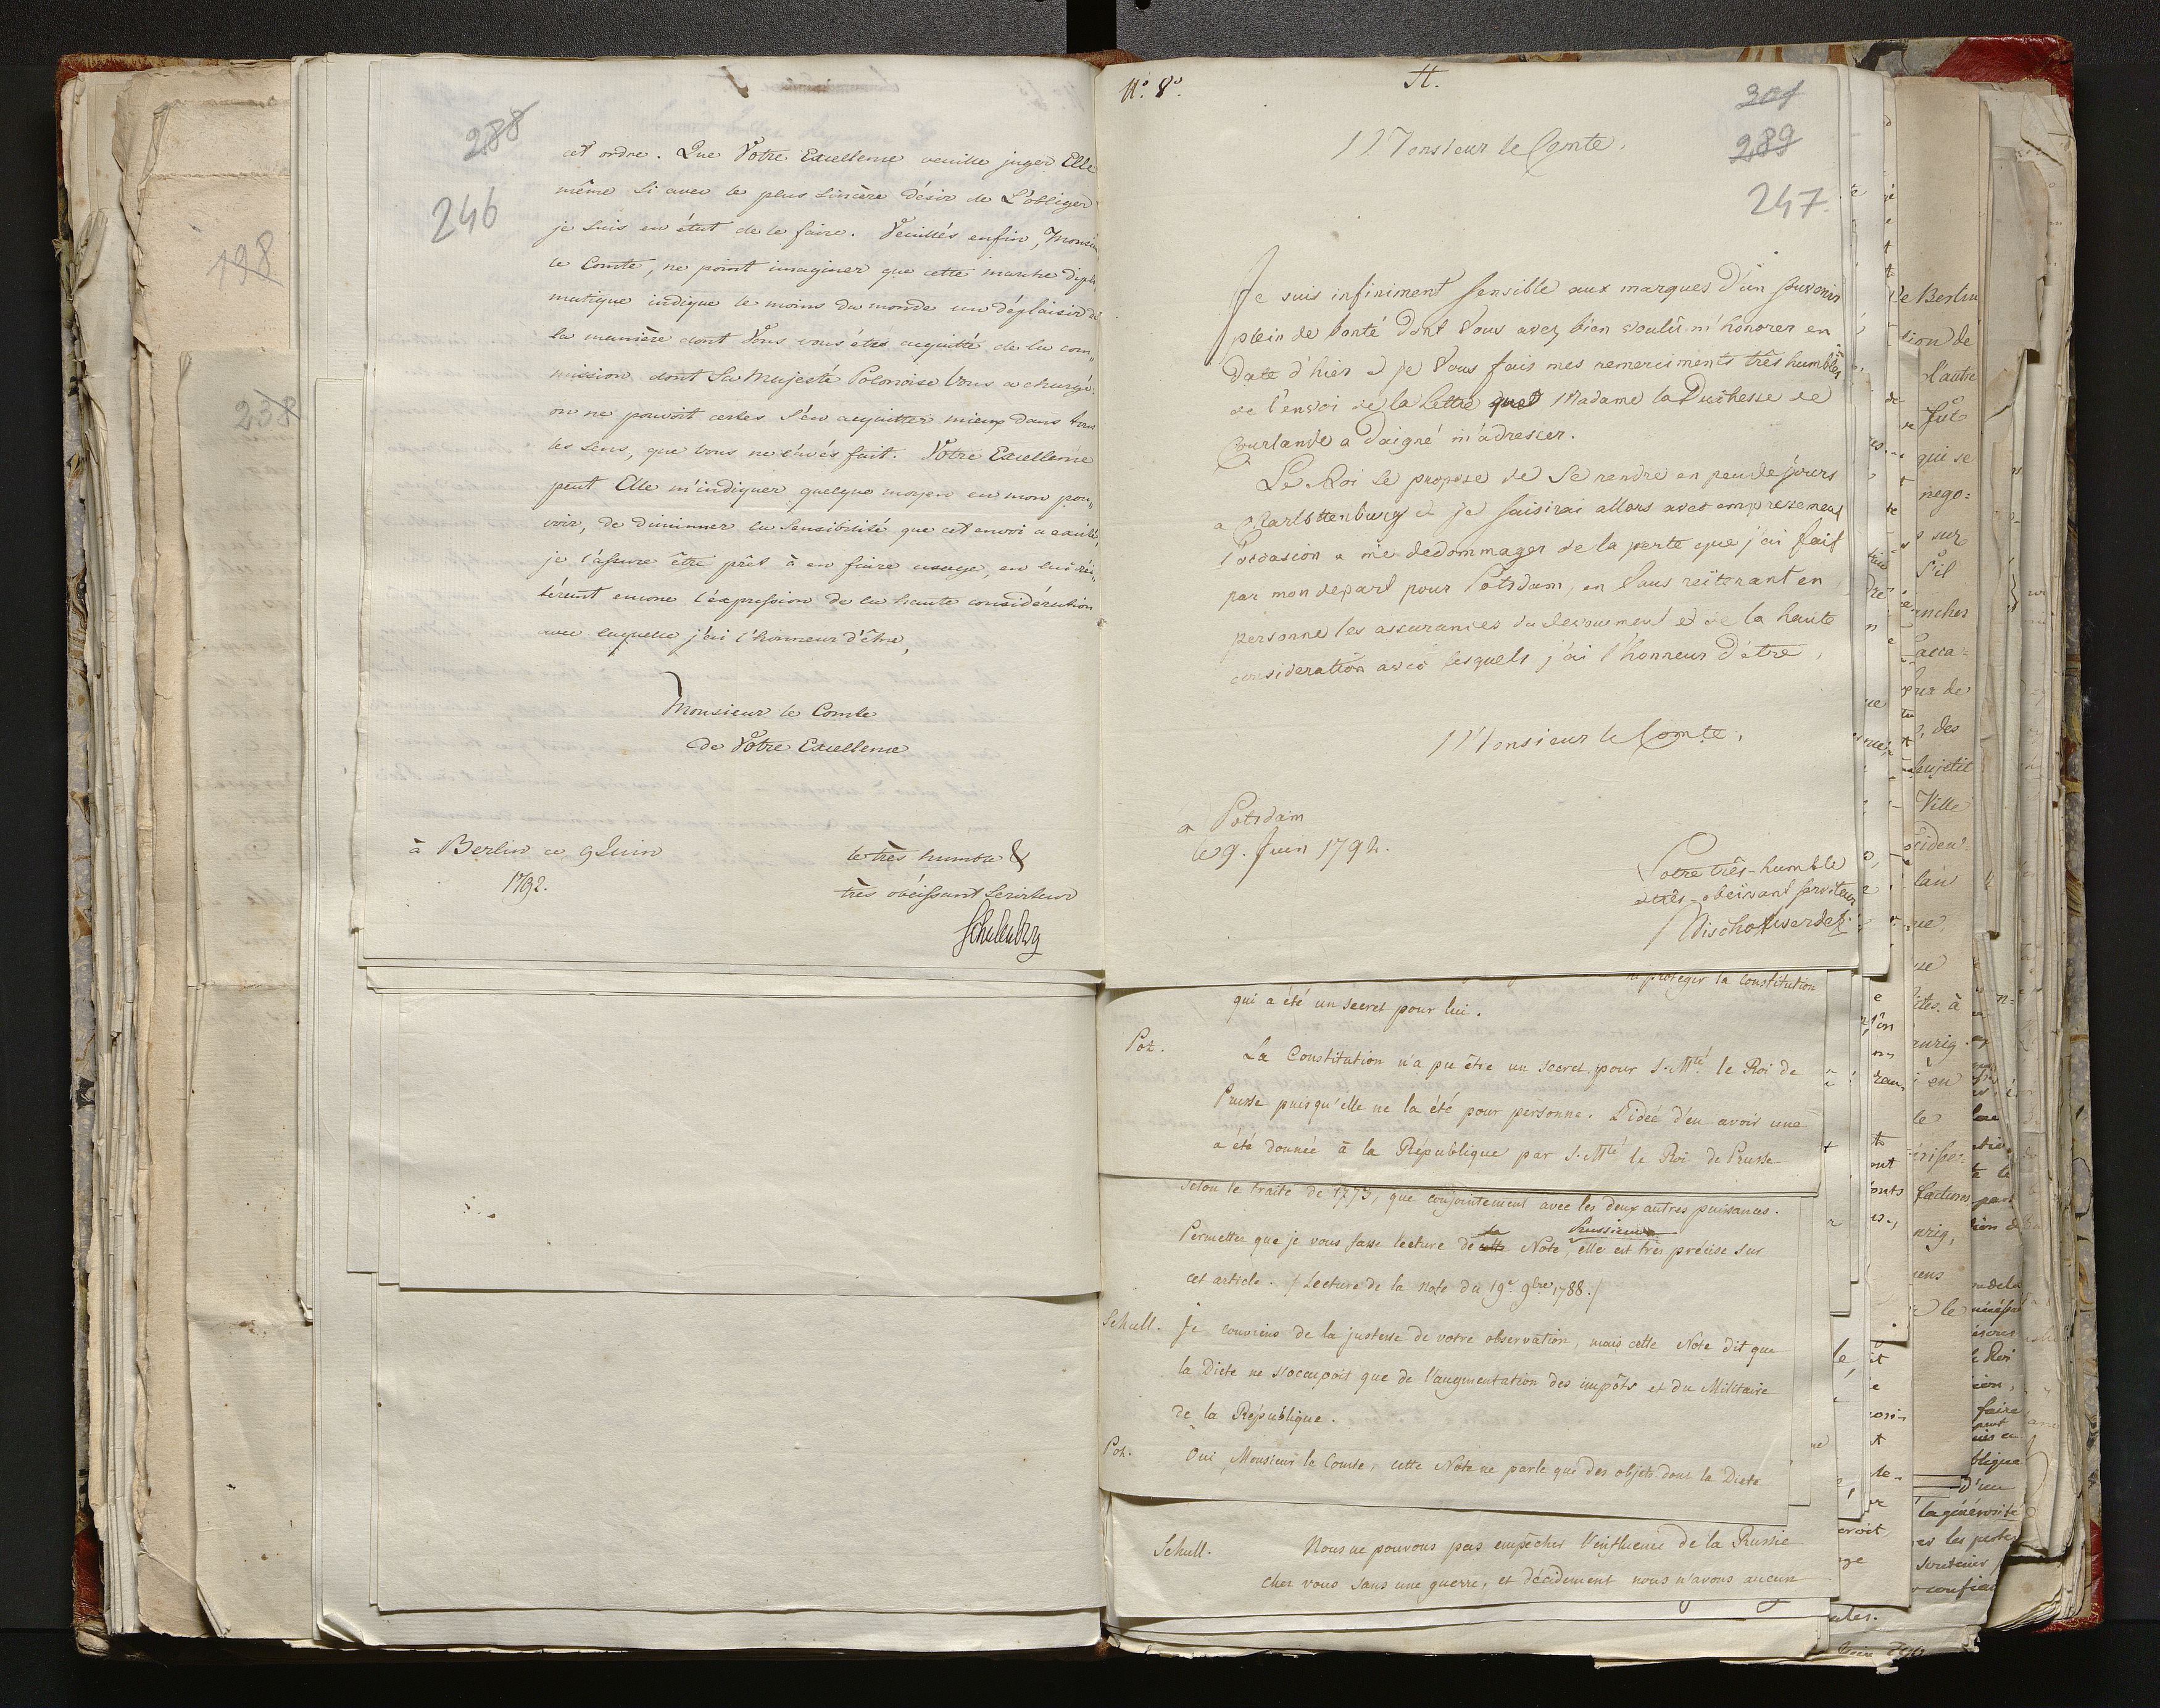 288
246
cet ordre. Que Votre Excellence veuille juger Elle
même si avec le plus sincère désir de L'obliger
je suis en état de le faire. Veuillés enfin, Monsieur
le Comte, ne point imaginer que cette marche diplo„
matique indique le moins du monde un déplaisir de
la manière dont Vous vous étes acquitté de la com„
mission dont Sa Majesté Polonoise Vous a chargé:
on ne pouvoit certes s'en acquitter mieux dans tous
les sens, que vous ne l'avés fait. Votre Excellence
peut Elle m'indiquer quelque moyen en mon pou„
voir, de diminuer la sensibilité que cet envoi a excité,
je l'assure être prêt à en faire usage, en lui réi„
térant encore l'expression de la haute considération
avec laquelle j'ai l'honneur d'être,
Monsieur le Comte
de Votre Excellence
à Berlin ce 9 Juin
1792.
le très humble &
très obéissant Serviteur
Schulenburg
198
238
N.º 8º.
H.
301
289
247.
Monsieur le Comte,
Je suis infiniment sensible aux marques d'un souvenir
plein de bonté dont Vous avez bien voulû m'honorer en
date d'hier et je Vous fais mes remerciments très humbles
de l'envoi de la lettre que Madame la Duchesse de
Courlande a daigné m'adresser.
Le Roi se propose de se rendre en peu de jours
a Charlottenburg et je saisirai allors avec empressement
l'occasion a me dedommager de la perte que j'ai fait
par mon depart pour Potsdam, en Vous reïterant en
personne les assurances du devoument et de la haute
consideration avec lesquels j'ai l'honneur d'être,
Monsieur le Comte,
a Potsdam
le 9. Juin 1792.
Votre très-humble
et très-obeissant serviteur
Bischoffwerder.
protéger la Constitution
qui a été un secret pour lui.
Pot. La Constitution n'a pu être un secret pour S. Mté le Roi de
Prusse puisqu'elle ne la été pour personne. L'idée d'en avoir une
a été donnée à la République par S. Mté le Roi de Prusse
selon le traité de 1773, que conjointement avec les deux autres puissances.
Permettez que je vous fasse lecture de cette la Note Prussienne, elle est très précise sur
cet article. /: Lecture de la note du 19e 9bre 1788:/
Schull. Je conviens de la justesse de votre observation, mais cette Note dit que
la Diete ne s'occupoit que de l'augmentation des impôts et du Militaire
de la République.
Pot. Oui, Monsieur le Comte, cette Note ne parle que des objets dont la Diete
Schull. Nous ne pouvons pas empêcher l'influence de la Russie
chez vous sans une guerre, et décidement nous n'avons aucun